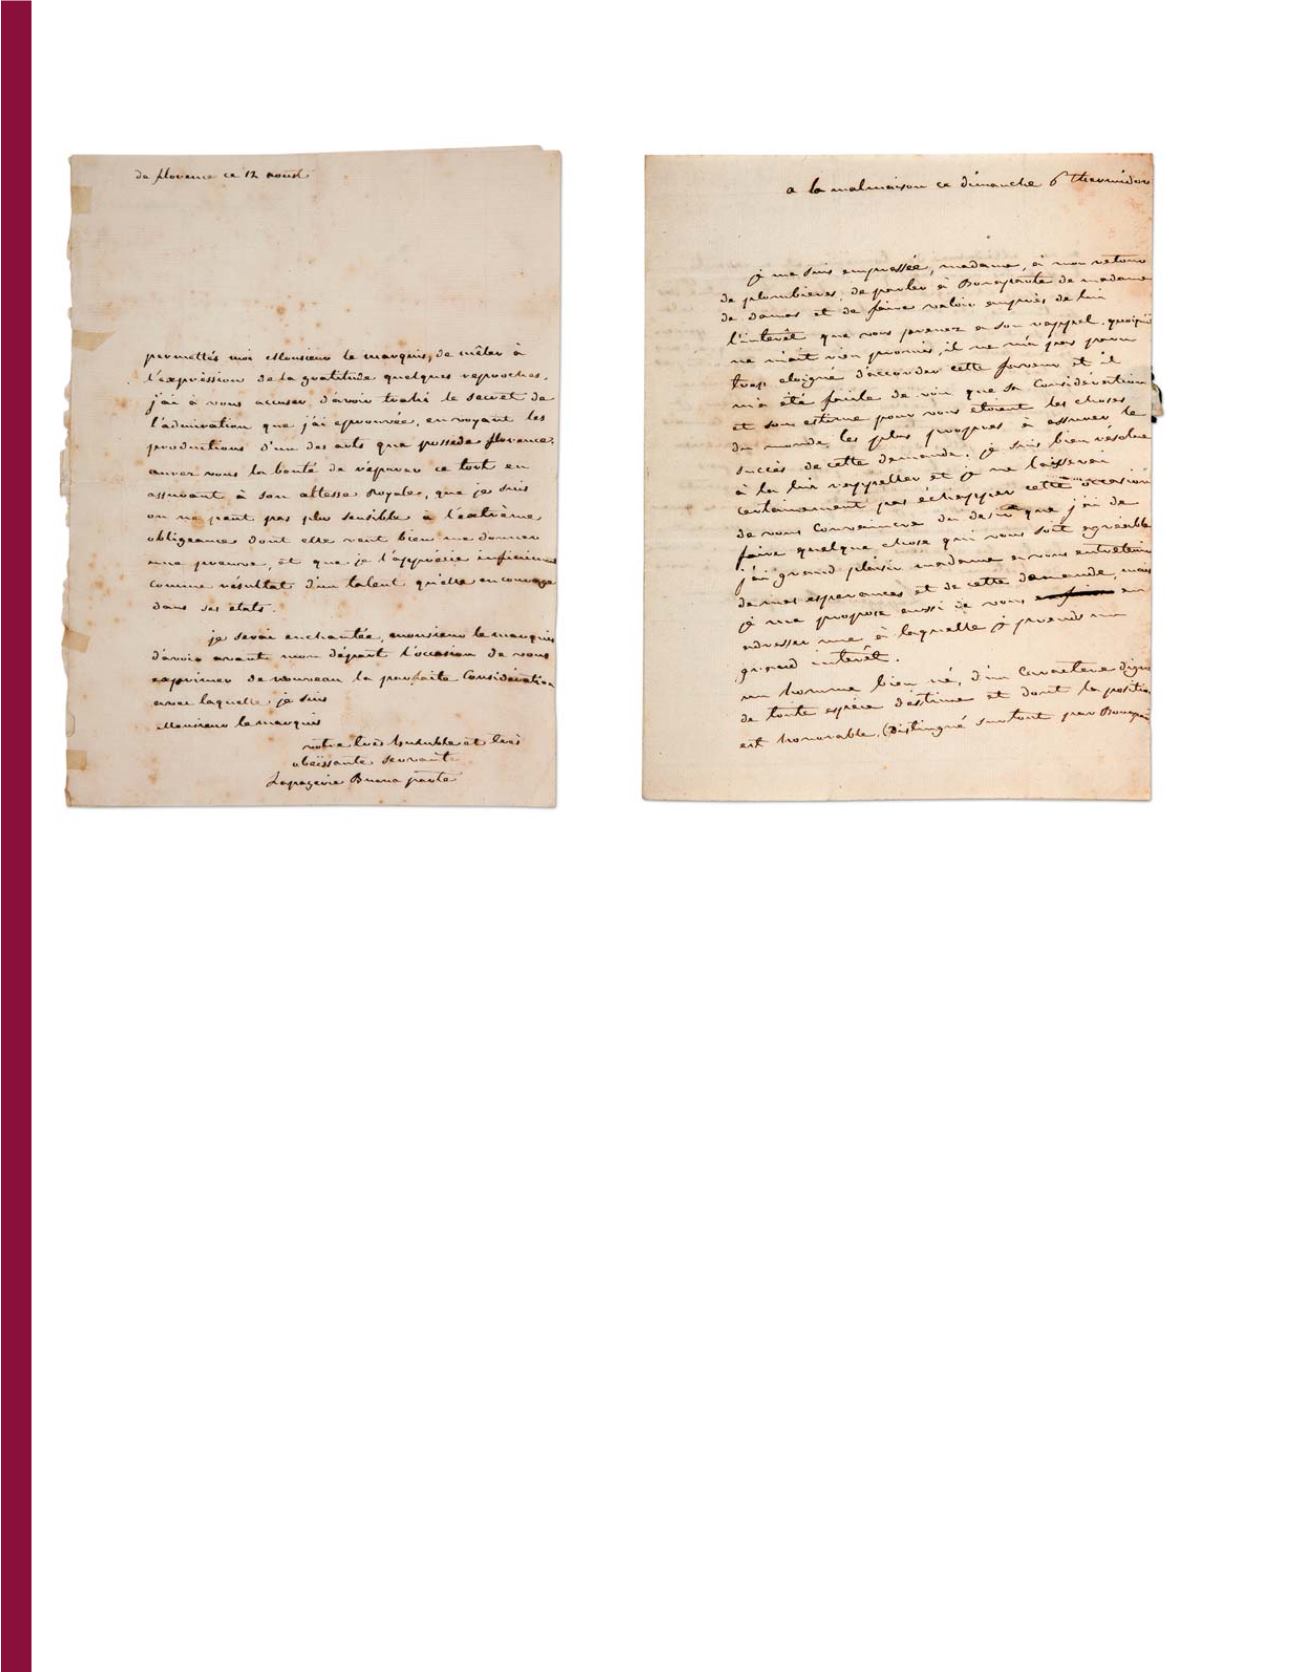 de florence ce 12 aoust
permettés moi Monsieur le marquis, de mêler à
l'expression de la gratitude quelques reproches.
j'ai à vous accuser d'avoir trahi le secret de
l'admiration que j'ai éprouvée, en voyant les
productions d'un des arts que possede florence.
aurez vous la bonté de réparer ce tort en
assurant à son altesse Royale, que je suis
on ne peut pas plus sensible à l'extrême
obligeance dont elle veut bien me donner
une preuve, et que je l'apprécie infiniment
comme résultat d'un talent qu'elle encourage
dans ses etats.
je serai enchantée, monsieur le marquis
d'avoir avant mon départ l'occasion de vous
exprimer de nouveau la parfaite Considération
avec laquelle, je suis
Monsieur le marquis
votre très humble et très
obeïssante servante
Lapagerie Buona parte
a la malmaison ce dimanche 6 thermidor
je me suis empressée, madame, à mon retour
de plombieres, de parler à Bonaparte de madame
de damas et de faire valoir auprès de lui
l'interêt que vous prenez a son rappel. quoiqu'il
ne m'ait rien promis, il ne m'a pas paru
trop eloigné d'accorder cette faveur et il
m'a été facile de voir que sa Considération
et son estime pour vous etoient les choses
du monde les plus propres à assurer le
succès de cette demande. je suis bien résolue
à la lui rappeller et je ne laisserai
certainement pas échapper cette occasion
de vous Convaincre du desir que j'ai de
faire quelque chose qui vous soit agreable
j'ai grand plaisir madame a vous entretenir
de mes esperances et de cette demande, mais
je me propose aussi de vous en
adresser une à laquelle je prends un
grand interêt.
un homme bien né, d'un Caractere digne
de toute espèce d'estime et dont la position
est honorable, (Distingué surtout par